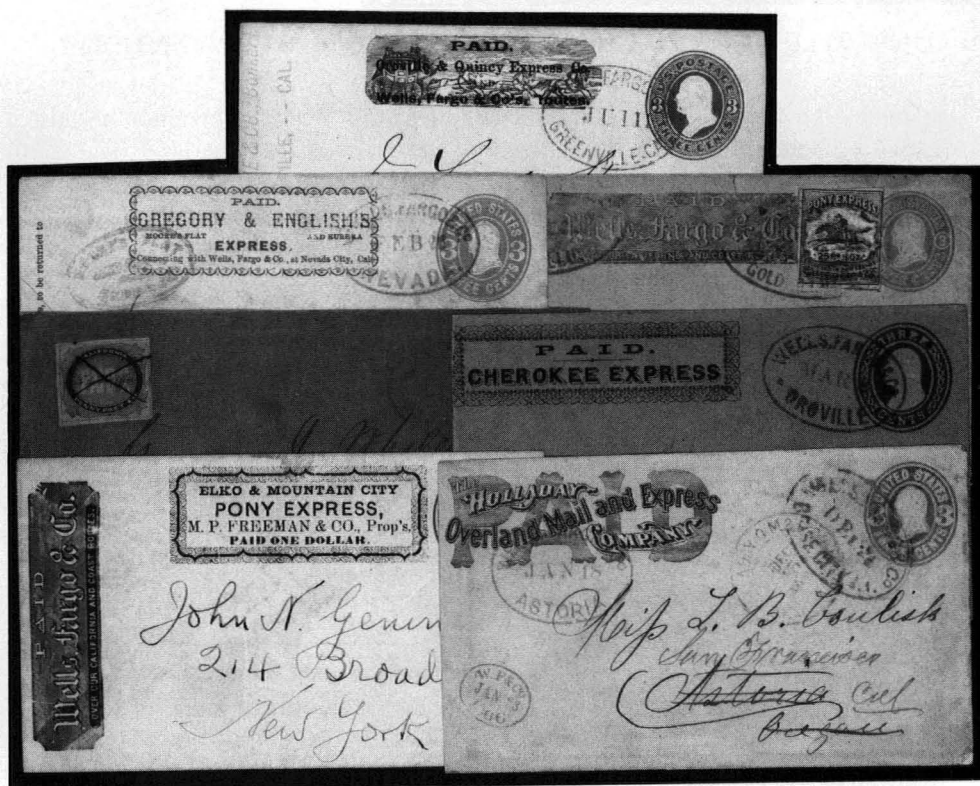 PAID.
Oroville & Quincy Express Co.
Wells, Fargo & Co's, Routes.
FARGO
JU 11
GREENVILLE-C
U.S. POSTAGE
3 3
THREE CENTS
VILLE, -- CAL.
to be returned to
PAID.
GREGORY & ENGLISH'S
MOORE'S FLAT AND EUREKA
EXPRESS.
Connecting with Wells, Fargo & Co., at Nevada City, Cal.
FARGO
FEB
NEVADA
UNITED STATES
THREE CENTS
PAID
Wells, Fargo & Co.
GOLD
PONY EXPRESS
PAID.
CHEROKEE EXPRESS
WELLS, FAR
MAR
OROVILLE
THREE
CENTS
PAID
Wells Fargo & Co.
OVER OUR CALIFORNIA AND COAST ROUTES
ELKO & MOUNTAIN CITY
PONY EXPRESS,
M. P. FREEMAN & CO., Prop's,
PAID ONE DOLLAR.
John N. Genin
214 Broad
New York
PAID
THE HOLLADAY
Overland Mail and Express
COMPANY
JAN 18
ASTORIA
WELLS
DEC 24
UNITED STATES
CENTS
Miss L. B.
San Francisco
Astoria Cal
Oregon
W. F. & CO.
JAN 23